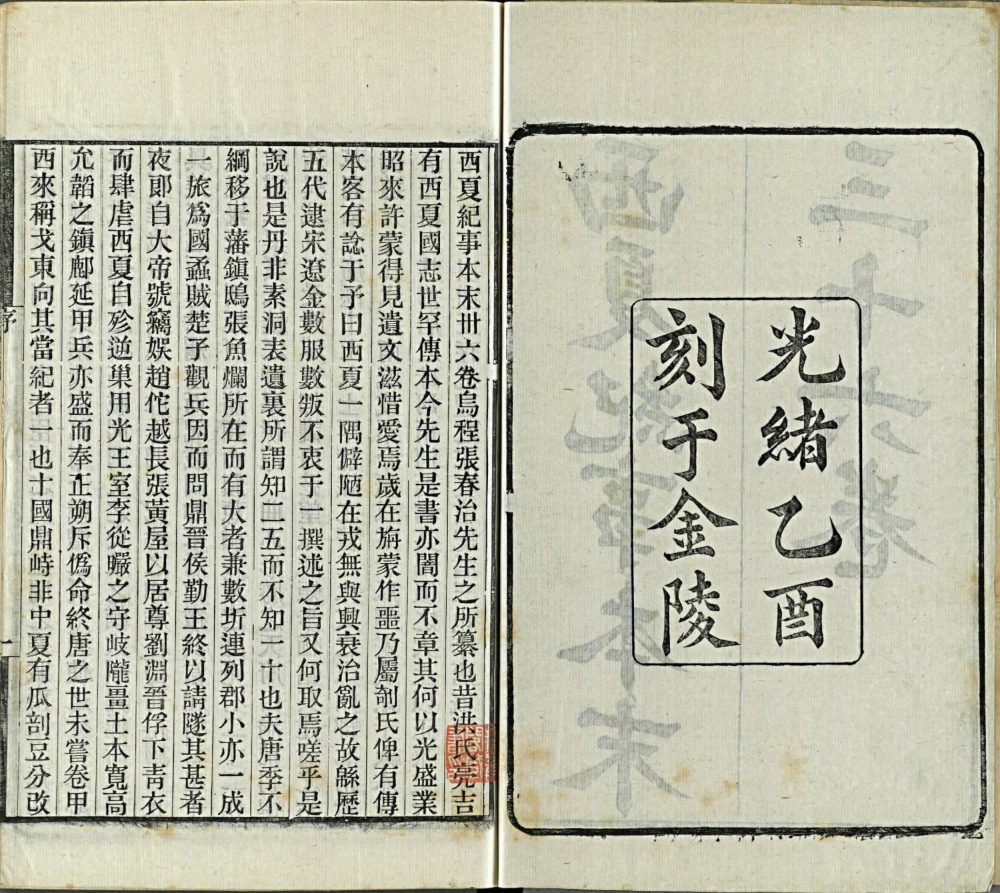 光緒乙酉
刻于金陵
西夏紀事本末卅六卷烏程張春治先生之所纂也昔洪氏亮吉
有西夏國志世罕傳本今先生是書亦闇而不章其何以光盛業
昭來許蒙得見遺文滋惜愛焉歲在旃蒙作噩乃屬剞氏俾有傳
本客有諗于予曰西夏一隅僻陋在戎無與興衰治亂之故繇歷
五代逮宋遼金數服數叛不衷于一撰述之旨又何取焉嗟乎是
說也是丹非素洞表遺裏所謂知二五而不知一十也夫唐季不
綱移于藩鎮鴟張魚爛所在而有大者兼數圻連列郡小亦一成
一旅爲國蟊賊楚子觀兵因而問鼎晉侯勤王終以請隧其甚者
夜郎自大帝號竊娛趙佗越長張黃屋以居尊劉淵晉俘下靑衣
而肆虐西夏自殄逆巢用光王室李從曮之守岐隴畺土本寬高
允韜之鎮鄜延甲兵亦盛而奉正朔斥僞命終唐之世未嘗卷甲
西來稱戈東向其當紀者一也十國鼎峙非中夏有瓜剖豆分改
序
一
三十六卷
西夏紀事本末